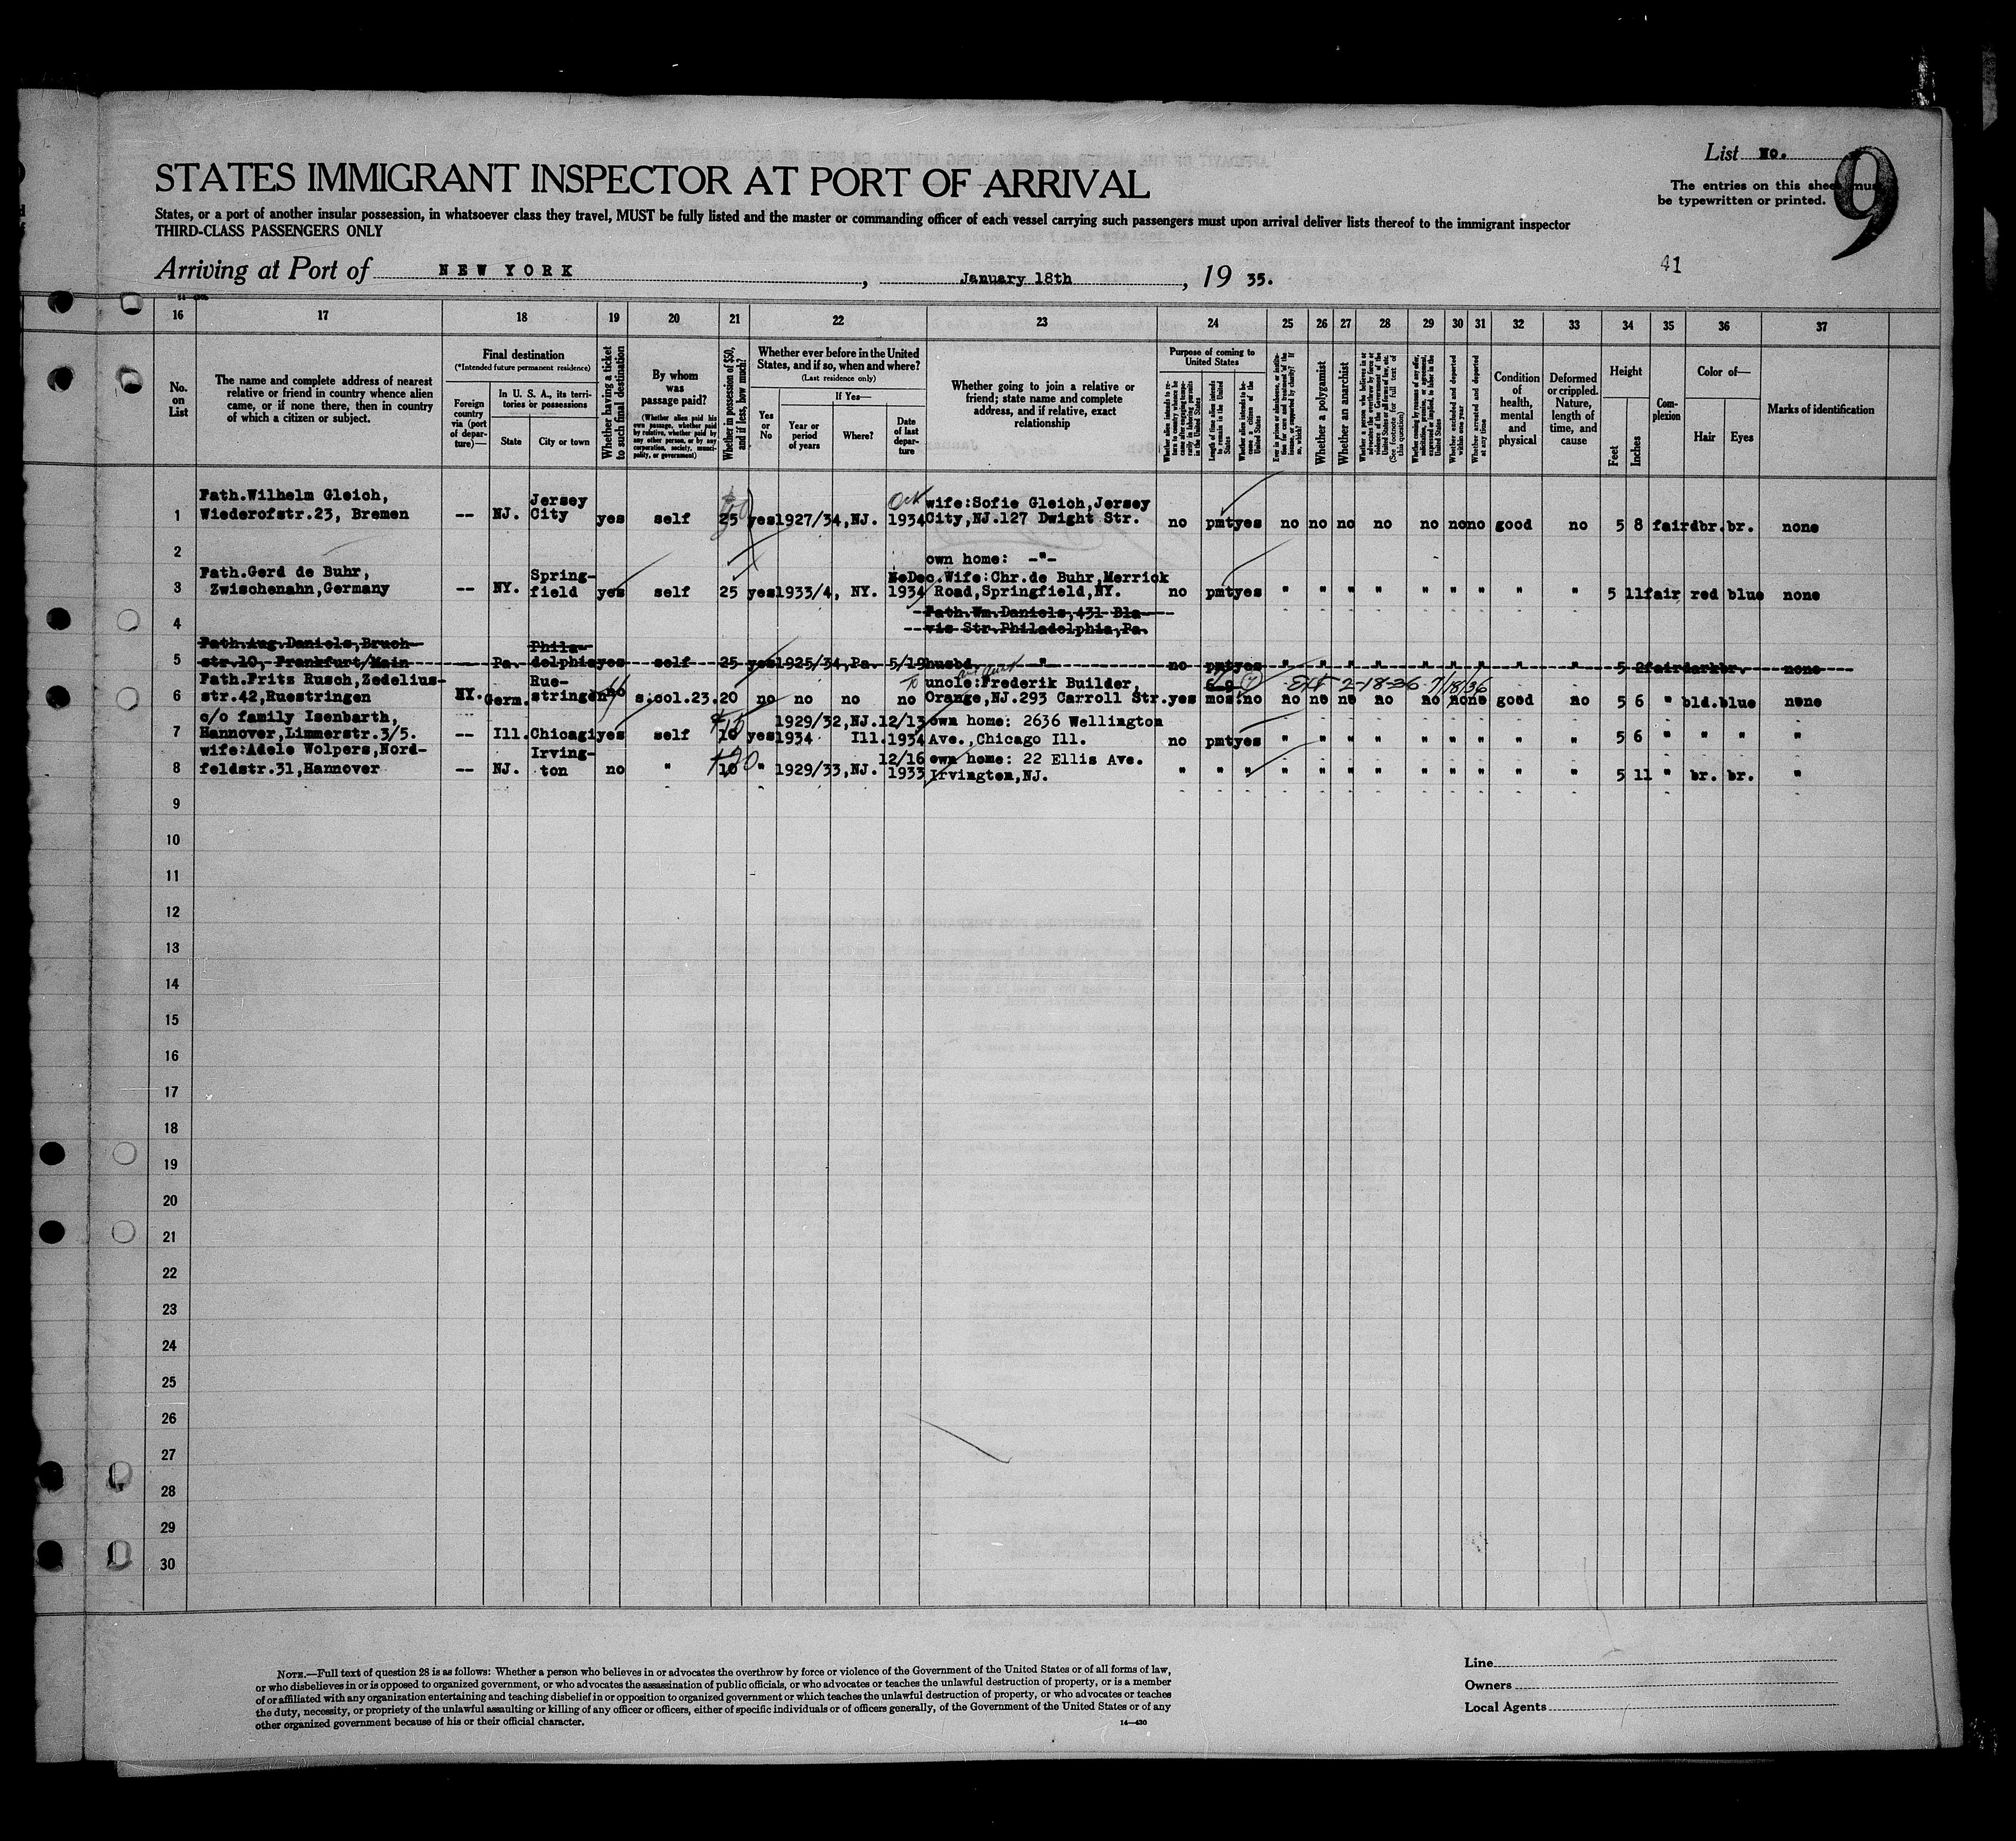 STATES IMMIGRANT INSPECTOR AT PORT OF ARRIVAL
List No. 9
The entries on this sheet must
be typewritten or printed.
States, or a port of another insular possession, in whatsoever class they travel, MUST be fully listed and the master or commanding officer of each vessel carrying such passengers must upon arrival deliver lists thereof to the immigrant inspector
THIRD-CLASS PASSENGERS ONLY
Arriving at Port of NEW YORK, January 18th, 19 35.
41
16 17 18 19 20 21 22 23 24 25 26 27 28 29 30 31 32 33 34 35 36 37
No. on List
The name and complete address of nearest
relative or friend in country whence alien
came, or if none there, then in country
of which a citizen or subject.
Final destination
(*Intended future permanent residence)
Foreign country via (port of departure)—
In U. S. A., its territories or possessions
State
City or town
Whether having a ticket to such final destination
By whom was passage paid?
(Whether alien paid his own passage, whether paid by relative, whether paid by any other person, or by any corporation, society, municipality, or government)
Whether in possession of $50, and if less, how much?
Whether ever before in the United
States, and if so, when and where?
(Last residence only)
Yes or No
If Yes—
Year or period of years
Where?
Date of last departure
Whether going to join a relative or
friend; state name and complete
address, and if relative, exact
relationship
Purpose of coming to United States
Length of time alien intends to remain in the United States
Whether alien intends to become a citizen of the United States
Whether a polygamist
Whether an anarchist
Whether excluded and deported within one year
Whether arrested and deported at any time
Condition of health, mental and physical
Deformed or crippled. Nature, length of time, and cause
Height
Feet
Inches
Complexion
Color of—
Hair
Eyes
Marks of identification
Fath.Wilhelm Gleich, Jersey Oct wife:Sofie Gleich,Jersey
1 Wiederofstr.23, Bremen -- NJ. City yes self 25 yes 1927/34,NJ. 1934 City,NJ.127 Dwight Str. no pmt yes no no no no no no no good no 5 8 fair dbr. br. none
2 own home: -"-
Fath.Gerd de Buhr, Spring- Dec. Wife:Chr.de Buhr,Merrick
3 Zwischenahn,Germany -- NY. field yes self 25 yes 1933/4, NY. 1934 Road,Springfield,NY. no pmt yes " " " " " " " " " 5 11 fair red blue none
Fath.Wm.Daniels,431 Bla-
4 vis Str.Philadelphia,Pa.
Fath.Aug.Daniels,Bruch- Phila-
5 str.10, Frankfurt/Main -- Pa. delphia yes self 25 yes 1925/34,Pa. 5/19 husbd. " no pmt yes " " " " " " " " " 5 2 fair dark br. none
Fath.Fritz Rusch,Zedelius- Rue- uncle:Frederik Builder, Ext 2-18-36 7/18/36
6 str.42,Ruestringen NY. Germ. stringen no s.sol.23. 20 no no no no Orange,NJ.293 Carroll Str. yes mos. no no no no no no no no good no 5 6 " bld. blue none
c/o family Isenbarth, 1929/32,NJ. 12/13 own home: 2636 Wellington
7 Hannover,Limmerstr.3/5. -- Ill. Chicago yes self 10 yes 1934 Ill. 1934 Ave.,Chicago Ill. no pmt yes " " " " " " " " " 5 6 " " " "
wife:Adele Wolpers,Nord- Irving- 12/16 own home: 22 Ellis Ave.
8 feldstr.31,Hannover -- NJ. ton no " 10 " 1929/33,NJ. 1933 Irvington,NJ. " " " " " " " " " " " " 5 11 " br. br. "
9
10
11
12
13
14
15
16
17
18
19
20
21
22
23
24
25
26
27
28
29
30
NOTE.—Full text of question 28 is as follows: Whether a person who believes in or advocates the overthrow by force or violence of the Government of the United States or of all forms of law,
or who disbelieves in or is opposed to organized government, or who advocates the assassination of public officials, or who advocates or teaches the unlawful destruction of property, or is a member
of or affiliated with any organization entertaining and teaching disbelief in or opposition to organized government or which teaches the unlawful destruction of property, or who advocates or teaches
the duty, necessity, or propriety of the unlawful assaulting or killing of any officer or officers, either of specific individuals or of officers generally, of the Government of the United States or of any
other organized government because of his or their official character.
14—430
Line
Owners
Local Agents